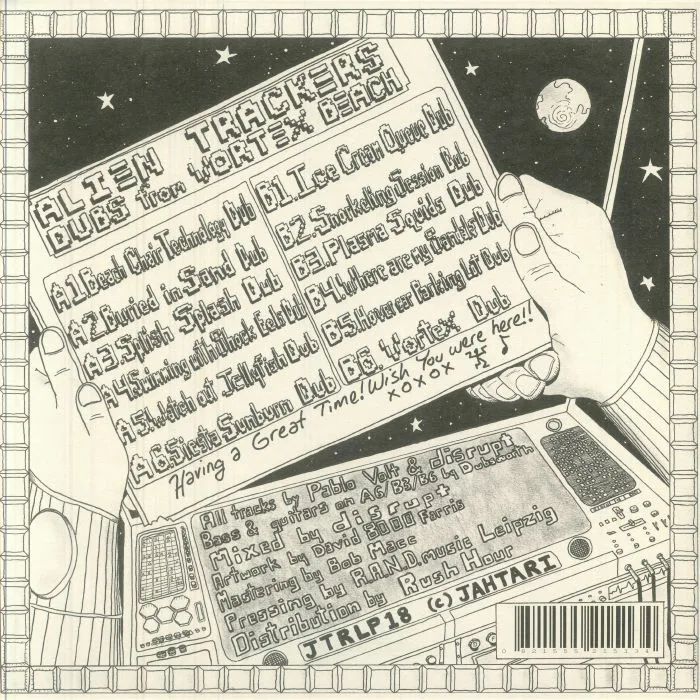 ALIEN TRACKERS
DUBS from VORTEX BEACH
A1. Beach Chair Technology Dub
A2. Buried in Sand Dub
A3. Splish Splash Dub
A4. Swimming with Shock Eels Dub
A5. Watch out Jellyfish Dub
A6. Siesta Sunburn Dub
B1. Ice Cream Queue Dub
B2. Snorkeling Session Dub
B3. Plasma Squids Dub
B4. Where are my Sandals Dub
B5. Hovercar Parking Lot Dub
B6. Vortex Dub
Having a Great Time! Wish You were here!!
XOXOX
All tracks by Pablo Volt & disrupt
Bass & guitars on A6/B3/B6 by Dubsworth
Mixed by disrupt
Artwork by David 8000 Farris
Mastering by Bob Macc
Pressing by R.A.N.D. music Leipzig
Distribution by Rush Hour
JTRLP18 (c) JAHTARI